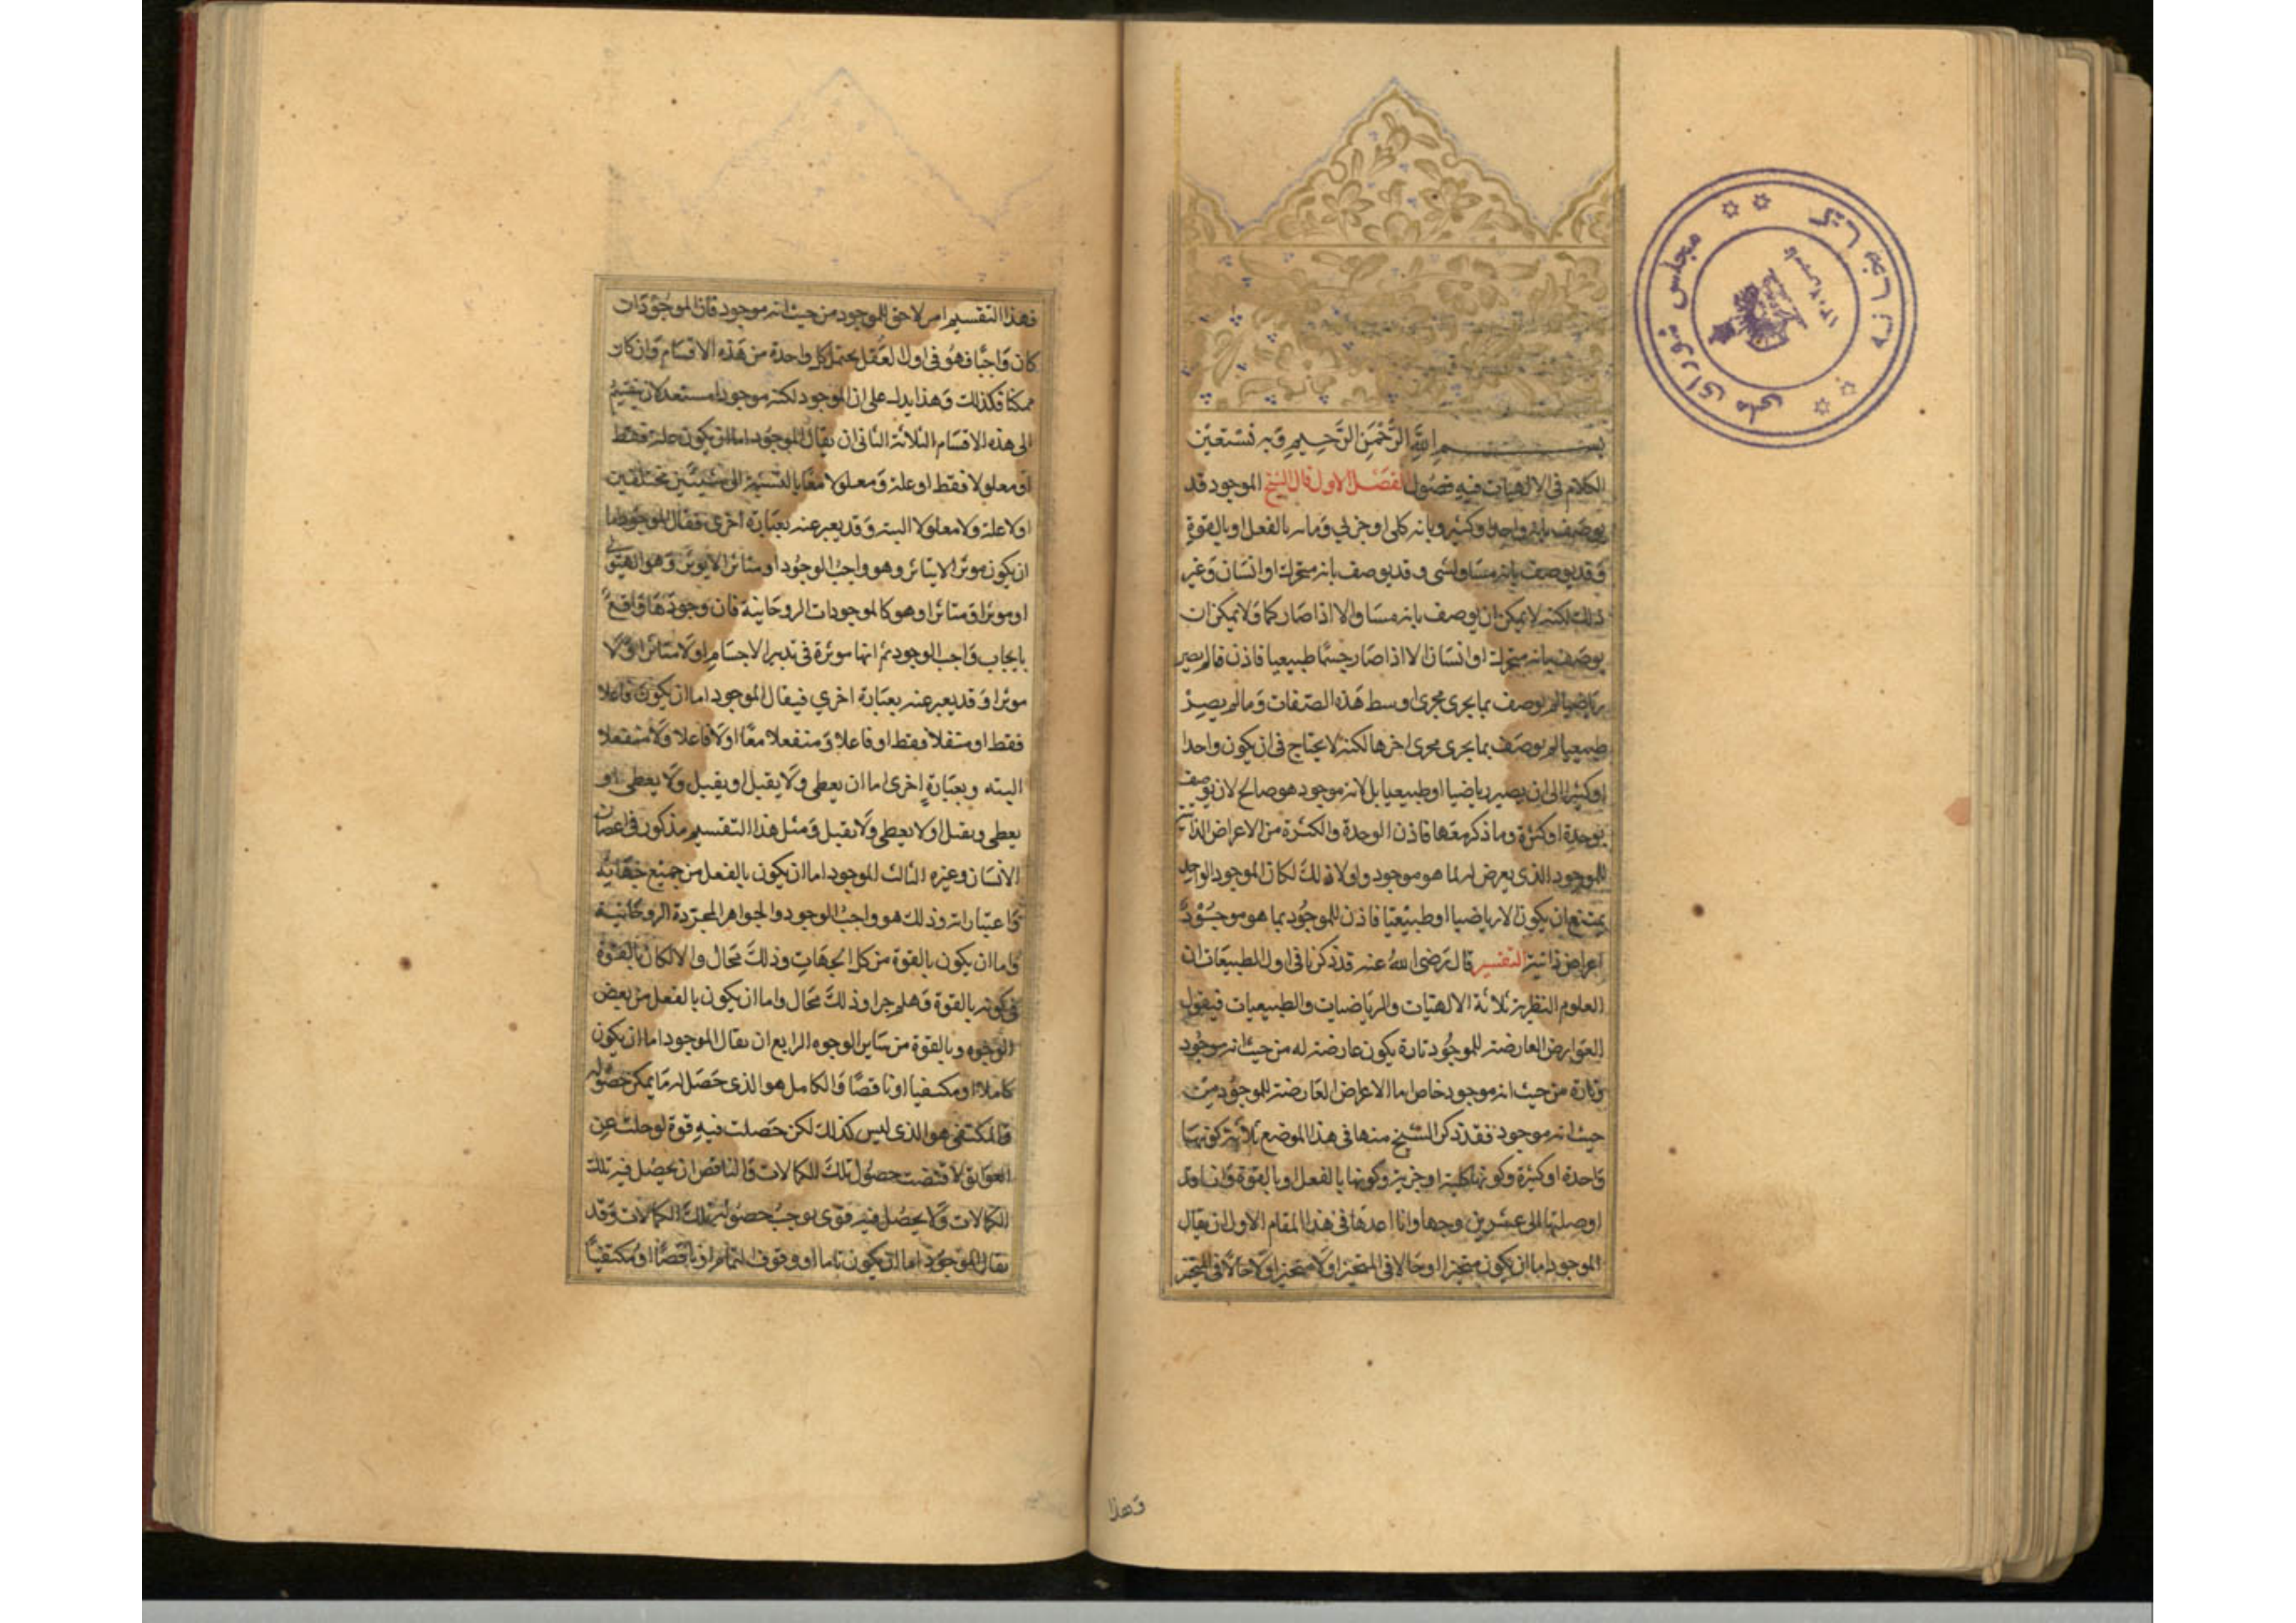 بسم الله الرحمن الرحيم وبه نستعين
الكلام في الالهيات فيه فصول الفصل الاول قال الشيخ الموجود قد
يوصف بانه واحد او كثير وبانه كلي او جزئي وبانه بالفعل او بالقوة
وقد يوصف بانه مساو لشي وقد يوصف بانه متحرك او انسان وغير
ذلك لكنه لا يمكن ان يوصف بانه مساو الا اذا صار كما ولا يمكن ان
يوصف بانه متحرك او انسان الا اذا صار جسما طبيعيا فاذن فالم يصر
رياضيا لم يوصف بما يجري مجرى اوسط هذه الصفات وما لم يصر
طبيعيا لم يوصف بما يجرى مجرى اخرها لكنه لا يحتاج في ان يكون واحدا
او كثيرا الى ان يصير رياضيا او طبيعيا بل لانه موجود هو صالح لان يوصف
بوحدة او كثرة وما ذكر معها فاذن الوحدة والكثرة من الاعراض الذاتية
للموجود الذي يعرض له لما هو موجود ولولا ذلك لكان الموجود الواحد
يمتنع ان يكون الا رياضيا او طبيعيا فاذن للموجود بما هو موجود
اعراض ذاتية التفسير قال رضي الله عنه قد ذكرنا في اول الطبيعات ان
العلوم النظرية ثلاثة الالهيات والرياضيات والطبيعيات فيقول
العوارض العارضة للموجود تارة يكون عارضة له من حيث انه موجود
وتارة من حيث انه موجود خاص اما الاعراض العارضة للموجود من
حيث انه موجود فقد ذكر الشيخ منها في هذا الموضع ثلاثة كونها
واحدة او كثيرة وكونها كلية او جزية وكونها بالفعل او بالقوة وانا قد
اوصلتها الى عشرين وجها وانا اعدها في هذا المقام الاول ان يقال
الموجود اما ان يكون متحيزا او حالا في المتحيز او لا متحيزا ولا حالا في المتحيز
وهذا
فهذا التقسيم امر لاحق للموجود من حيث انه موجود فان الموجود ان
كان واجبا فهو في اول العقل يحتمل كل واحدة من هذه الاقسام وان كان
ممكنا فكذلك وهذا يدل على ان الموجود لكنه موجودا مستعد لان ينقسم
الى هذه الاقسام الثلاثة الثاني ان يقال الموجود اما ان يكون علة فقط
او معلولا فقط او علة ومعلولا معا بالنسبة الى شيئين مختلفين
او لا علة ولا معلولا البتة وقد يعبر عنه بعبارة اخرى فقال الموجود اما
ان يكون موثرا لا يتاثر وهو واجب الوجود او متاثرا لا يوثر وهو الهيولى
او موثرا ومتاثرا وهو كالموجودات الروحانية فان وجودها واقع
بايجاب واجب الوجود ثم انها موثرة في تدبير الاجسام او لا متاثرا ولا
موثرا وقد يعبر عنه بعبارة اخري فيقال الموجود اما ان يكون فاعلا
فقط او منفعلا فقط او فاعلا ومنفعلا معا او لا فاعلا ولا منفعلا
البته وبعبارة اخرى اما ان يعطي ولا يقبل او يقبل ولا يعطى او
يعطى ويقبل او لا يعطى ولا يقبل ومثل هذا التقسيم مذكور في اعضاء
الانسان وغيره الثالث الموجود اما ان يكون بالفعل من جميع جهاته
واعتباراته وذلك هو واجب الوجود والجواهر المجردة الروحانية
واما ان يكون بالقوة من كل الجهات وذلك محال والا لكان بالقوة
في كونه بالقوة وهلم جرا وذلك محال واما ان يكون بالفعل من بعض
الوجوه وبالقوة من ساير الوجوه الرابع ان يقال الموجود اما ان يكون
كاملا او مكتفيا او ناقصا والكامل هو الذي حصل له ما يمكن حصوله
والمكتفي هو الذي ليس كذلك لكن حصلت فيه قوة لو خلت عن
العوايق لاقتضت حصول تلك الكمالات والناقص ان يحصل فيه تلك
الكمالات ولا يحصل فيه قوى يوجب حصول تلك الكمالات وقد
يقال الموجود اما ان يكون تاما او فوق التمام او ناقصا او مكتفيا
كتابخانه
مجلس شوراى ملى